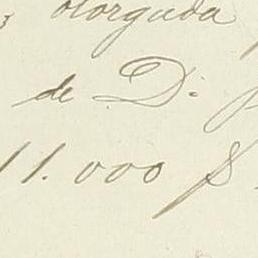 otorgada
de D.
11.000 $